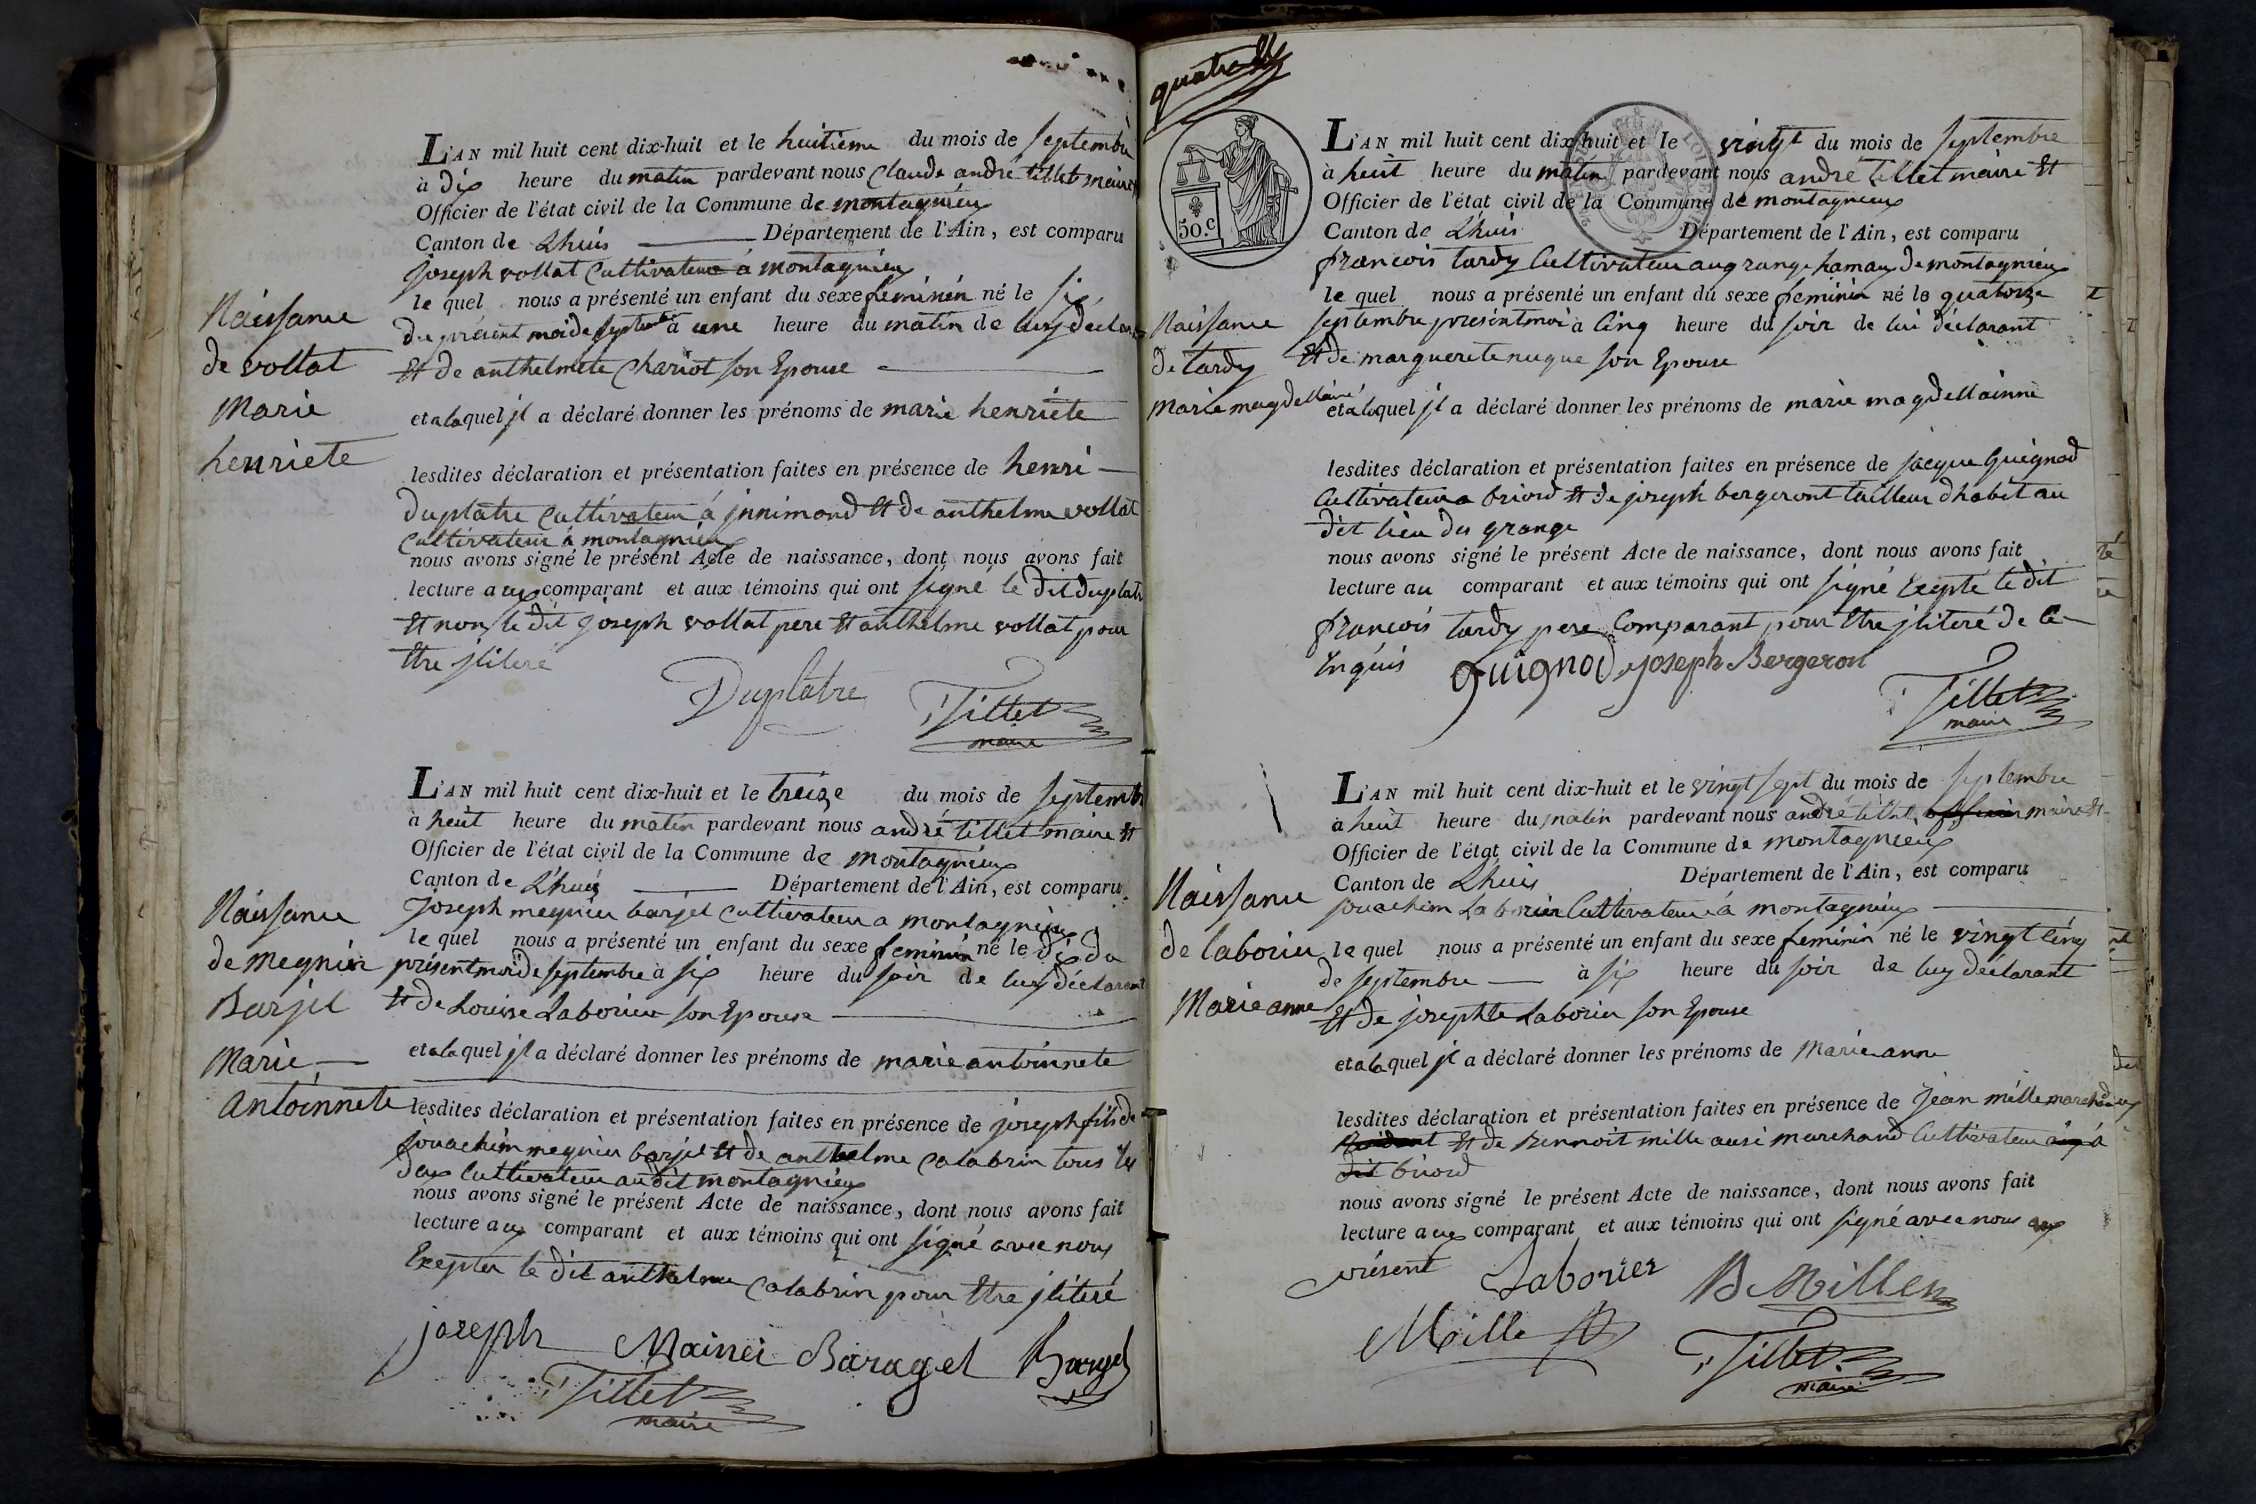 Naissance
de vollat
Marie
henriete
L'AN mil huit cent dix-huit et le huitieme du mois de septembre
à dix heure du matin pardevant nous claude andré tillet maire
Officier de l'état civil de la Commune de montagnieu
Canton de Lhuis Département de l'Ain, est comparu
joseph vollat Cultivateur à montagnieu
le quel nous a présenté un enfant du sexe feminin né le six
du présent moi de septembre à une heure du matin de luy déclarant
Et de anthelmete Chariot son Epouse
et a la quel jl a déclaré donner les prénoms de marie henriete
lesdites déclaration et présentation faites en présence de henri
Duplatre cultivateur à jnnimond Et de anthelme vollat
Cultivateur à montagnieu
nous avons signé le présent Acte de naissance, dont nous avons fait
lecture aux comparant et aux témoins qui ont signé le dit duplatre
Et non le dit joseph vollat pere Et anthelme vollat pour
Etre jliteré
Duplatre Tillet
maire
Naissance
de megnier
Barjel
Marie
antoinnete
L'AN mil huit cent dix-huit et le treize du mois de septembre
à heut heure du matin pardevant nous andré tillet maire Et
Officier de l'état civil de la Commune de montagnieux
Canton de Lhuis Département de l'Ain, est comparu
joseph megnier barjel cultivateur a montagnieu
le quel nous a présenté un enfant du sexe feminin né le dix du
présent moi de septembre à six heure du soir de luy déclarant
Et de Louise Laborier son Epouse
et a la quel jl a déclaré donner les prénoms de marie antoinnete
lesdites déclaration et présentation faites en présence de joseph fils de
jouachim megnier barjel Et de anthelme Calabrin tous les
deux Cultivateur au dit montagnieux
nous avons signé le présent Acte de naissance, dont nous avons fait
lecture aux comparant et aux témoins qui ont signé avec nous
Exepter le dit anthelme Calabrin pour Etre jliteré
joseph Mainei Baragel Bargel
Tillet
maire
quatre
50.C
Naissance
de tardy
Marie magdellaine
L'AN mil huit cent dix-huit et le vingt du mois de septembre
à heut heure du matin pardevant nous andré tillet maire Et
Officier de l'état civil de la Commune de montagnieux
Canton de Lhuis Département de l'Ain, est comparu
francois tardy Cultivateur au grange hamau de montagnieux
le quel nous a présenté un enfant du sexe feminin né le quatorze
septembre present moi à Cinq heure du soir de lui déclarant
Et de marguerete nuque son Epouse
et a la quel jl a déclaré donner les prénoms de marie magdellainne
lesdites déclaration et présentation faites en présence de jacque Guignod
Cultivateur a briord Et de joseph bergeront tailleur dhabit au
dit lieu des grange
nous avons signé le présent Acte de naissance, dont nous avons fait
lecture au comparant et aux témoins qui ont signé Exepté le dit
francois tardy pere Comparant pour Etre jliteré de Ce
Enquis Guignod joseph Bergeron
Tillet
maire
Naissance
de laborier
Marie anne
L'AN mil huit cent dix-huit et le vingt sept du mois de septembre
à heut heure du matin pardevant nous andré tillet maire Et
Officier de l'état civil de la Commune de montagnieux
Canton de Lhuis Département de l'Ain, est comparu
jouachim Laborier Cultivateur à montagnieux
le quel nous a présenté un enfant du sexe feminin né le vingt Cinq
de septembre à six heure du soir de luy déclarant
Et de josephte Laborier son Epouse
et a la quel jl a déclaré donner les prénoms de Marie anne
lesdites déclaration et présentation faites en présence de jean mille marchand
Et de Bennoit mille ausi marchand Cultivateur à
dit briord
nous avons signé le présent Acte de naissance, dont nous avons fait
lecture aux comparant et aux témoins qui ont signé avec nous
présent Laborier B Millen
Mille Tillet
maire